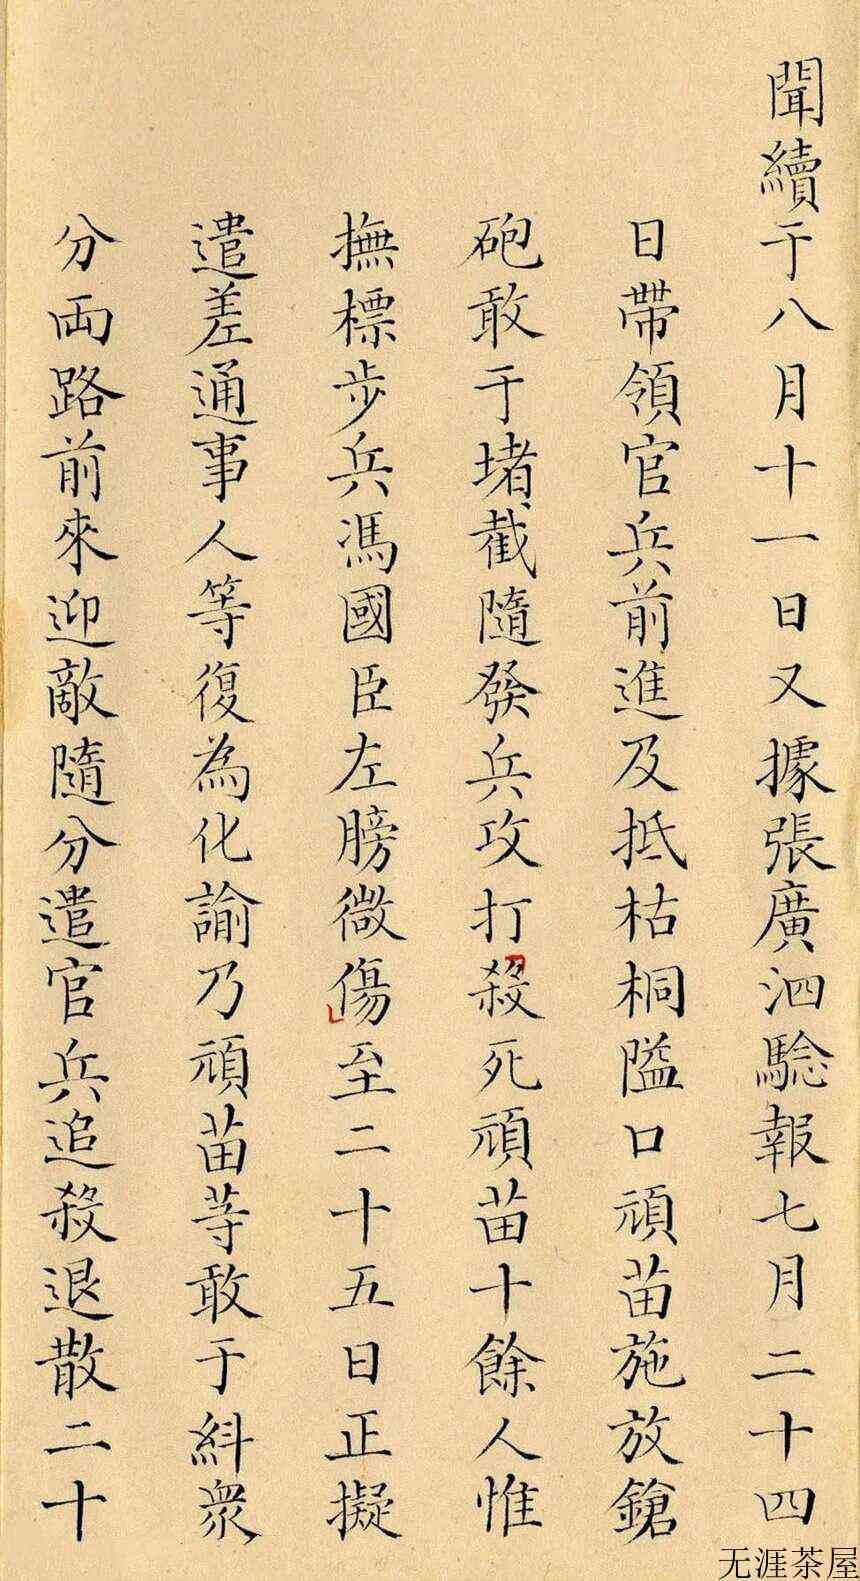 聞續于八月十一日又據張廣泗驗報七月二十四
日帶領官兵前進及抵枯桐隘口頑苗施放鎗
砲敢于堵截隨發兵攻打殺死頑苗十餘人惟
撫標步兵馮國臣左膀微傷至二十五日正擬
遣差通事人等復為化諭乃頑苗等敢于糾衆
分兩路前來迎敵隨分遣官兵追殺退散二十
无涯茶屋